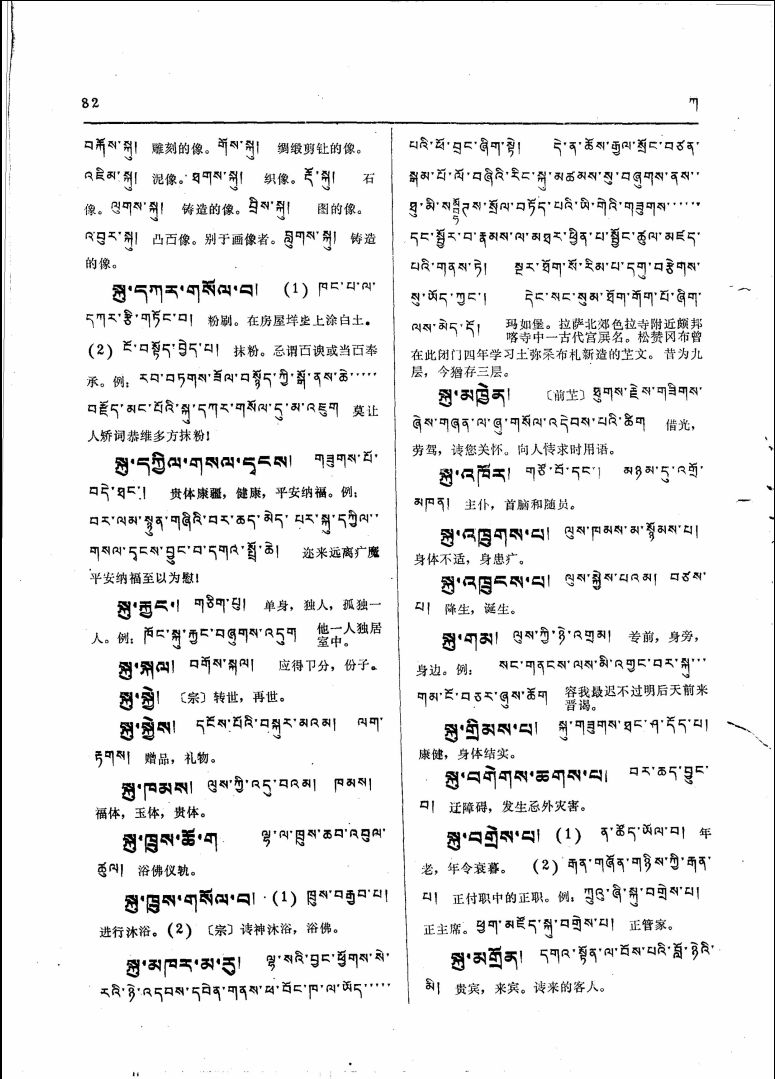 82
ཀ
བརྐོས་སྐུ། 雕刻的像。གོས་སྐུ། 绸缎剪钍的像。
འཇིམ་སྐུ། 泥像。ཐགས་སྐུ། 织像。རྡོ་སྐུ། 石
像。ལུགས་སྐུ། 铸造的像。བྲིས་སྐུ། 图的像。
འབུར་སྐུ། 凸百像。别于画像者。བླུགས་སྐུ། 铸造
的像。
སྐུ་དཀར་གསོལ་བ། (1) ཁང་པ་ལ་
དཀར་རྩི་གཏོང་བ། 粉刷。在房屋垟坒上涂白土。
(2) ངོ་བསྟོད་བྱེད་པ། 抹粉。忌谓百谀或当百奉
承。例: རབ་བཏགས་ཟོལ་བསྟོད་ཀྱི་སྒོ་ནས་ཆེ་····
བརྗོད་མང་པོའི་སྐུ་དཀར་གསོལ་དུ་མ་འཇུག 莫让
人矫词恭维多方抹粉!
སྐུ་དཀྱིལ་གསལ་དྭངས། གཟུགས་པོ་
བདེ་ཐང་། 贵体康疆，健康，平安纳福。例:
བར་ལམ་སྙུན་གཞིའི་བར་ཆད་མེད་པར་སྐུ་དཀྱིལ་
གསལ་དྭངས་བྱུང་བ་དགའ་སྤྲོ་ཆེ། 迩来远离疒魔
平安纳福至以为慰!
སྐུ་རྐྱང་། གཅིག་པུ། 单身，独人，孤独一
人。例: ཁོང་སྐུ་རྐྱང་བཞུགས་འདུག 他一人独居
室中。
སྐུ་སྐལ། བགོས་སྐལ། 应得卩分，份子。
སྐུ་སྐྱེ། 〔宗〕转世，再世。
སྐུ་སྐྱེས། དངོས་པོའི་བསྐུར་མའམ། ལག་
རྟགས། 赠品，礼物。
སྐུ་ཁམས། ལུས་ཀྱི་འདུ་བའམ། ཁམས།
福体，玉体，贵体。
སྐུ་ཁྲུས་ཆོ་ག ལྷ་ལ་ཁྲུས་ཆབ་འབུལ་
ཚུལ། 浴佛仪轨。
སྐུ་ཁྲུས་གསོལ་བ། (1) ཁྲུས་བརྒྱབ་པ།
进行沐浴。(2) 〔宗〕诗神沐浴，浴佛。
སྐུ་མཁར་མ་རུ། ལྷ་སའི་བྱང་ཕྱོགས་སེ་
རའི་ཉེ་འདབས་དབེན་གནས་ཕ་བོང་ཁ་ལ་ཡོད་·····
པའི་ཕོ་བྲང་ཞིག་སྟེ། དེ་ན་ཆོས་རྒྱལ་སྲོང་བཙན་
སྒམ་པོ་ལོ་བཞིའི་རིང་སྐུ་མཚམས་སུ་བཞུགས་ནས་
ཐུ་མི་སམྦྷོ་ཊས་སྲོལ་བཏོད་པའི་ཡི་གེའི་གཟུགས་·····
དང་སྦྱོར་བ་རྣམས་ལ་མཐར་ཕྱིན་པ་སྦྱོང་ཚུལ་མཛད་
པའི་གནས་ཏེ། སྔར་ཐོག་སོ་རིམ་པ་དགུ་བརྩེགས་
སུ་ཡོད་ཀྱང་། དེང་སང་སུམ་ཐོག་གོག་པོ་ཞིག་
ལས་མེད་དོ། 玛如堡。拉萨北郊色拉寺附近颇邦
喀寺中一古代宫㞡名。松赞冈布曾
在此闭门四年学习土弥桑布札新造的芏文。昔为九
层，今犹存三层。
སྐུ་མཁྱེན། 〔前芏〕ཐུགས་རྗེས་གཟིགས་
ཞེས་གཞན་ལ་ཞུ་གསོལ་འདེབས་པའི་ཚིག 借光，
劳驾，诗您关怀。向人诗求时用语。
སྐུ་འཁོར། གཙོ་བོ་དང་། མཉམ་དུ་འགྲོ་
མཁན། 主仆，首脑和随员。
སྐུ་འཁྲུགས་པ། ལུས་ཁམས་མ་སྙོམས་པ།
身体不适，身患疒。
སྐུ་འཁྲུངས་པ། ལུས་སྐྱེས་པའམ། བཙས་
པ། 降生，诞生。
སྐུ་གམ། ལུས་ཀྱི་ཉེ་འགྲམ། 㫖前，身旁，
身边。例: སང་གནངས་ལས་མི་འགྱང་བར་སྐུ་··
གམ་ངོ་བཅར་ཞུས་ཆོག 容我最迟不过明后天前来
晋谒。
སྐུ་གྲིམས་པ། སྐུ་གཟུགས་ཐང་ཤ་དོད་པ།
康健，身体结实。
སྐུ་བགེགས་ཆགས་པ། བར་ཆད་བྱུང་
བ། 迂障碍，发生忌外灾害。
སྐུ་བགྲེས་པ། (1) ན་ཚོད་ཡོལ་བ། 年
老，年令衰暮。 (2) རྒན་གཞོན་གཉིས་ཀྱི་རྒན་
པ། 正付职中的正职。例: ཀྲུའུ་ཞི་སྐུ་བགྲེས་པ།
正主席。ཕྱག་མཛོད་སྐུ་བགྲེས་པ། 正管家。
སྐུ་མགྲོན། དགའ་སྟོན་ལ་བོས་པའི་བློ་ཉེའི་
མི། 贵宾，来宾。诗来的客人。